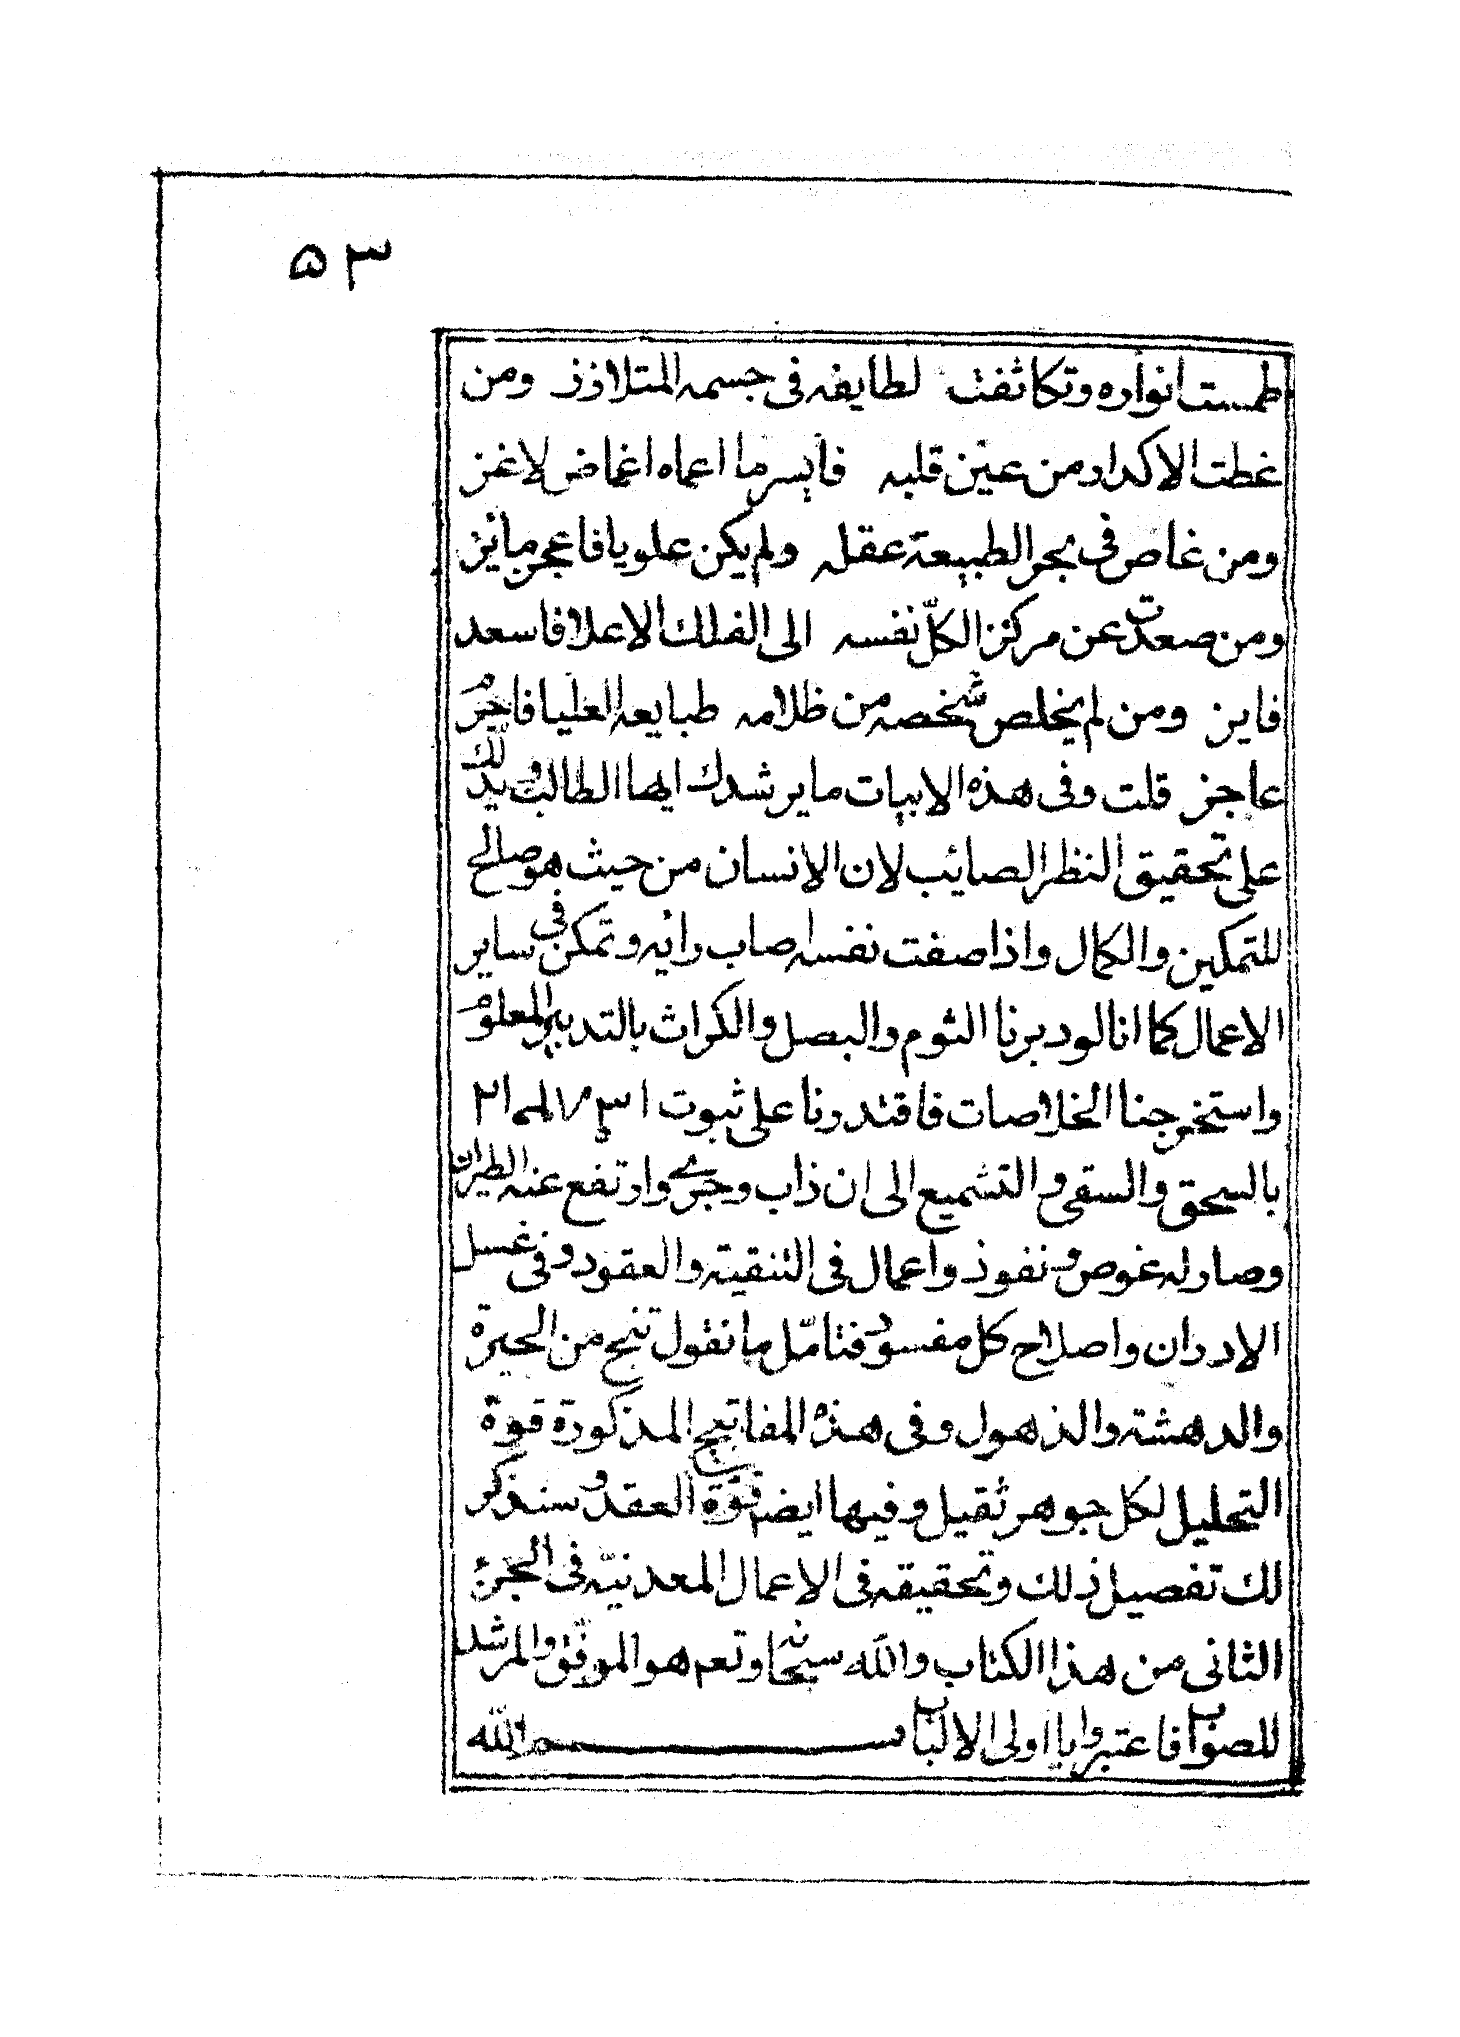 ٥٣
طمست انواره وتكاثفت لطايفه فى جسمه المتلازز ومن
غطت الاكدار من عين قلبه فايسر ما اعماه اغماض لاغز
ومن غاص فى بحر الطبيعة عقله ولم يكن علويا فاعجز مايز
ومن صعدت عن مركز الكلّ نفسه الى الفلك الاعلا فاسعد
فايز ومن لم يخلص شخصه من ظلامه طبايعه العليا فاجرم
عاجز قلت وفى هذه الابيات ما يرشدك ايها الطالب ويدلك
على تحقيق النظر الصائب لان الانسان من حيث هو صالح
للتمكين والكمال واذا صفت نفسه اصاب رائيه وتمكن فى ساير
الاعمال كما انا لو دبرنا الثوم والبصل والكراث بالتدبير المعلوم
واستخرجنا الخلاصات فاقتدرنا على ثبوت
بالسحق والسقى والتشميع الى ان ذاب وجرى وارتفع عنه الطيران
وصار له غوص ونفوذ واعمال فى التنقية والعقود وفى غسل
الادران واصلاح كل مفسود فتامّل ما نقول تنج من الحيرة
والدهشة والذهول وفى هذه المفاتيح المذكورة قوة
التحليل لكل جوهر ثقيل وفيها ايضم قوة العقد وسنذكر
لك تفصيل ذلك وتحقيقه فى الاعمال المعدنيّة فى الجزء
الثانى من هذا الكتاب والله سبحانه وتعم هو الموفّق والمرشد
للصواب فاعتبروا يا اولى الالباب بسم الله